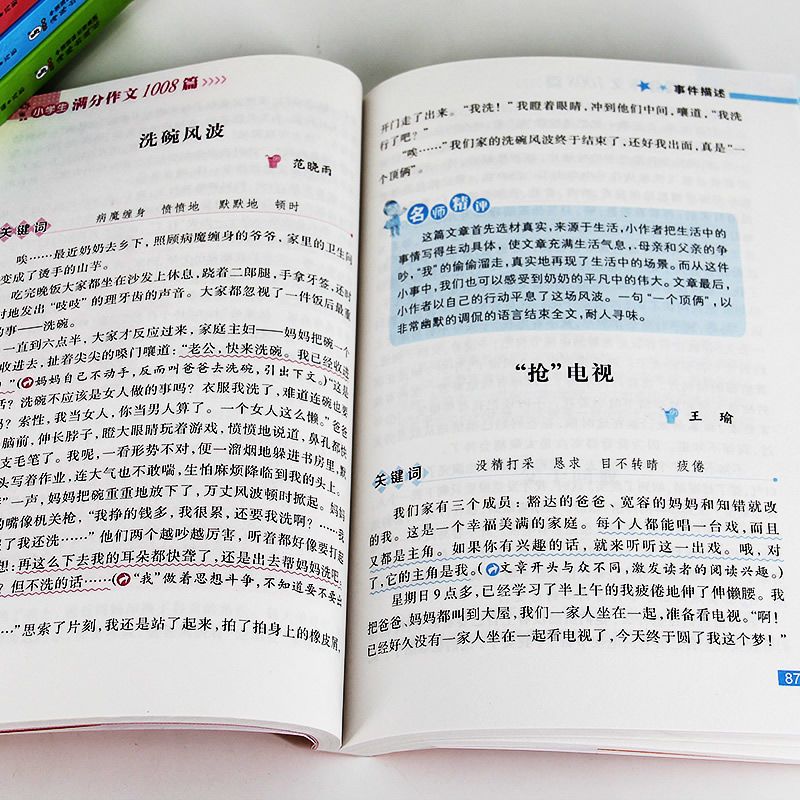 小学生 满分作文1008篇
洗碗风波
范晓雨
关键词
病魔缠身 愤愤地 默默地 顿时
唉……最近奶奶去乡下,照顾病魔缠身的爷爷,家里的卫生间
变成了烫手的山芋。
吃完晚饭大家都坐在沙发上休息,跷着二郎腿,手拿牙签,还时
时地发出“吱吱”的理牙齿的声音。大家都忽视了一件饭后最重
的事——洗碗。
一直到六点半,大家才反应过来,家庭主妇——妈妈把碗一个
收进去,扯着尖尖的嗓门嚷道:“老公,快来洗碗。我已经收进
”(妈妈自己不动手,反而叫爸爸去洗碗,引出下文。)“这是
话?洗碗不应该是女人做的事吗?衣服我洗了,难道连碗也要
?索性,我当女人,你当男人算了。一个女人这么懒。”爸爸
脑前,伸长脖子,瞪大眼睛玩着游戏,愤愤地说道,鼻孔都快
支毛笔了。我呢,一看形势不对,便一溜烟地躲进书房里,默
头写着作业,连大气也不敢喘,生怕麻烦降临到我的头上。
”一声,妈妈把碗重重地放下了,万丈风波顿时掀起。妈妈
的嘴像机关枪,“我挣的钱多,我很累,还要我洗啊?……我
了我还洗……”他们两个越吵越厉害,听着都好像要打起
想:再这么下去我的耳朵都快聋了,还是出去帮妈妈洗吧
?但不洗的话……(“我”做着思想斗争,不知道要不要出
…”思索了片刻,我还是站了起来,拍了拍身上的橡皮屑,
事件描述
开门走了出来。“我洗!”我瞪着眼睛,冲到他们中间,嚷道,“我洗
行了吧?”
“唉……”我们家的洗碗风波终于结束了,还好我出面,真是“一
个顶俩”。
名师精评
这篇文章首先选材真实,来源于生活,小作者把生活中的
事情写得生动具体,使文章充满生活气息,母亲和父亲的争
吵,“我”的偷偷溜走,真实地再现了生活中的场景。而从这件
小事中,我们也可以感受到奶奶的平凡中的伟大。文章最后,
小作者以自己的行动平息了这场风波。一句“一个顶俩”,以
非常幽默的调侃的语言结束全文,耐人寻味。
“抢”电视
王 瑜
关键词
没精打采 恳求 目不转睛 疲倦
我们家有三个成员:豁达的爸爸、宽容的妈妈和知错就改
的我。这是一个幸福美满的家庭。每个人都能唱一台戏,而且
又都是主角。如果你有兴趣的话,就来听听这一出戏。哦,对
了,它的主角是我。(文章开头与众不同,激发读者的阅读兴趣。)
星期日9点多,已经学习了半上午的我疲倦地伸了伸懒腰。我
把爸爸、妈妈都叫到大屋,我们一家人坐在一起,准备看电视。“啊!
已经好久没有一家人坐在一起看电视了,今天终于圆了我这个梦!”
87